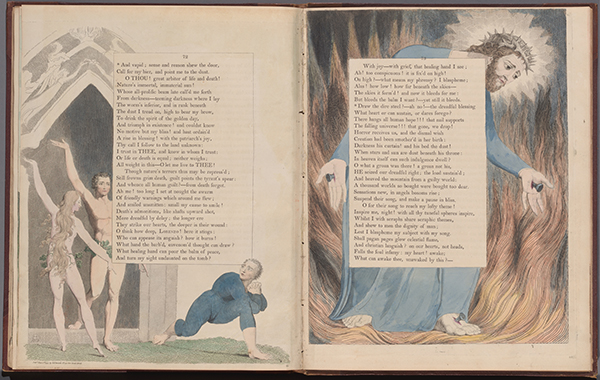 * And vapid; sense and reason shew the door,
Call for my bier, and point me to the dust.
O THOU! great arbiter of life and death!
Nature's immortal, immaterial sun!
Whose all-prolific beam late call'd me forth
From darkness—teeming darkness where I lay
The worm's inferior, and in rank beneath
The dust I tread on, high to bear my brow,
To drink the spirit of the golden day,
And triumph in existence! and couldst know
No motive but my bliss! and hast ordain'd
A rise in blessing! with the patriarch's joy,
Thy call I follow to the land unknown:
I trust in THEE, and know in whom I trust.
Or life or death is equal; neither weighs;
All weight in this—O let me live to THEE!
Though nature's terrors thus may be repress'd;
Still frowns grim death, guilt points the tyrant's spear:
And whence all human guilt?—from death forgot.
Ah me! too long I set at nought the swarm
Of friendly warnings which around me flew;
And smiled unsmitten: small my cause to smile!
Death's admonitions, like shafts upward shot,
More dreadful by delay; the longer ere
They strike our hearts, the deeper is their wound:
O think how deep, LORENZO! here it stings:
Who can appease its anguish? how it burns!
What hand the barb'd, envenom'd thought can draw?
What healing hand can pour the balm of peace,
And turn my sight undaunted on the tomb?
With joy—with grief, that healing hand I see;
Ah! too conspicuous! it is fix'd on high!
On high?—what means my phrensy? I blaspheme;
Alas! how low! how far beneath the skies—
The skies it form'd! and now it bleeds for me:
But bleeds the balm I want!—yet still it bleeds.
* Draw the dire steel!—ah no!—the dreadful blessing
What heart or can sustain, or dares forego?
There hangs all human hope! that nail supports
The falling universe!!! that gone, we drop!
Horror receives us, and the dismal wish
Creation had been smother'd in her birth:
Darkness his curtain! and his bed the dust!
When stars and sun are dust beneath his throne:
In heaven itself can such indulgence dwell?
O what a groan was there! a groan not his,
HE seized our dreadful right; the load sustain'd;
And heaved the mountain from a guilty world:
A thousand worlds so bought were bought too dear.
Sensations new, in angels bosoms rise;
Suspend their song, and make a pause in bliss.
O for their song to reach my lofty theme!
Inspire me, night! with all thy tuneful spheres
Whilst I with seraphs share seraphic themes,
And shew to men the dignity of man;
Lest I blaspheme my subject with my song.
Shall pagan pages glow celestial flame,
And christian languish? on our hearts, not heads,
Falls the foul infamy: my heart! awake;
What can awake thee, unawaked by this?—